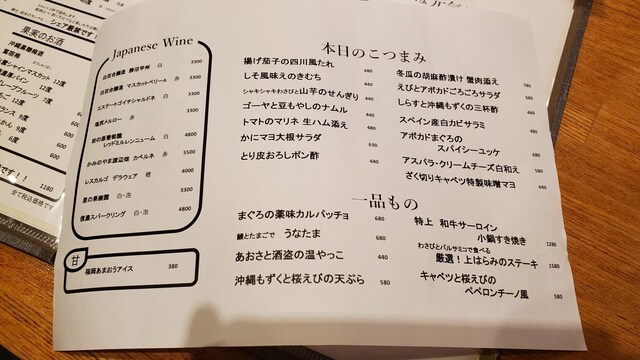 シェア飲放です！
果実のお酒
沖縄黒糖梅酒 12度
12度
12度
7度
12度
9度
9度
600
600
600
1180
全て税込価格です
Japanese Wine
白百合醸造 勝沼甲州 白 3300
白百合醸造 マスカットベリーA 赤 3300
エステートゴイチシャルドネ 白 3300
塩尻メルロー 赤 3300
レッドミルレンニューム 白 4800
かみのやま渡辺畑 カベルネ 赤 5500
レスカルゴ デラウェア 橙 4000
里の果樹園 白・泡 3300
信濃スパークリング 白・泡 4800
甘
福岡あまおうアイス 380
本日のこつまみ
揚げ茄子の四川風たれ 480
しそ風味えのきむち 440
シャキシャキわさびと山芋のせんぎり 440
ゴーヤと豆もやしのナムル 440
トマトのマリネ 生ハム添え 480
かにマヨ大根サラダ 630
とり皮おろしポン酢 440
冬瓜の胡麻酢漬け 蟹肉添え 580
えびとアボカドごろごろサラダ 680
しらすと沖縄もずくの三杯酢 440
スペイン産白カビサラミ 480
アボカドまぐろの
スパイシーユッケ 680
アスパラ・クリームチーズ白和え 580
ざく切りキャベツ特製味噌マヨ 440
一品もの
まぐろの薬味カルパッチョ 680
鰻とたまごで うなたま 680
あおさと酒盗の温やっこ 440
沖縄もずくと桜えびの天ぷら 580
特上 和牛サーロイン
小鍋すき焼き 1280
わさびとバルサミコで食べる
厳選！上はらみのステーキ 1580
キャベツと桜えびの
ペペロンチーノ風 580